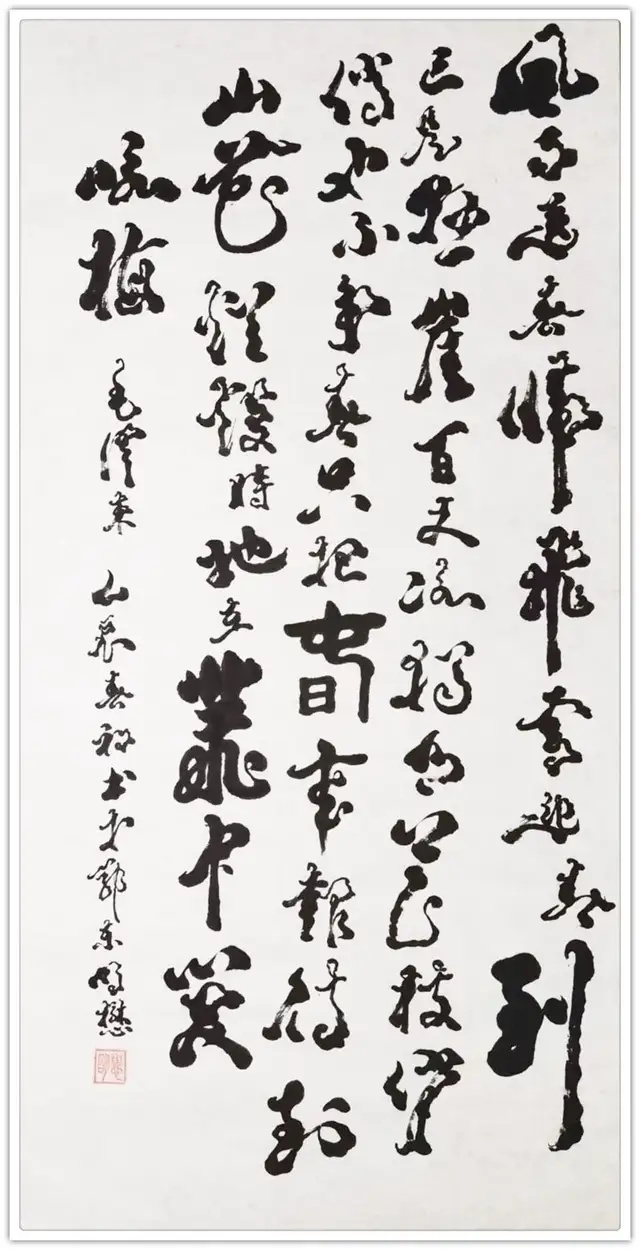 風雨送春歸飛雪迎春到
已是懸崖百丈冰猶有花枝俏
俏也不爭春只把春來報待到
山花爛熳時她在叢中笑
咏梅 毛澤東 春初書於鄂東